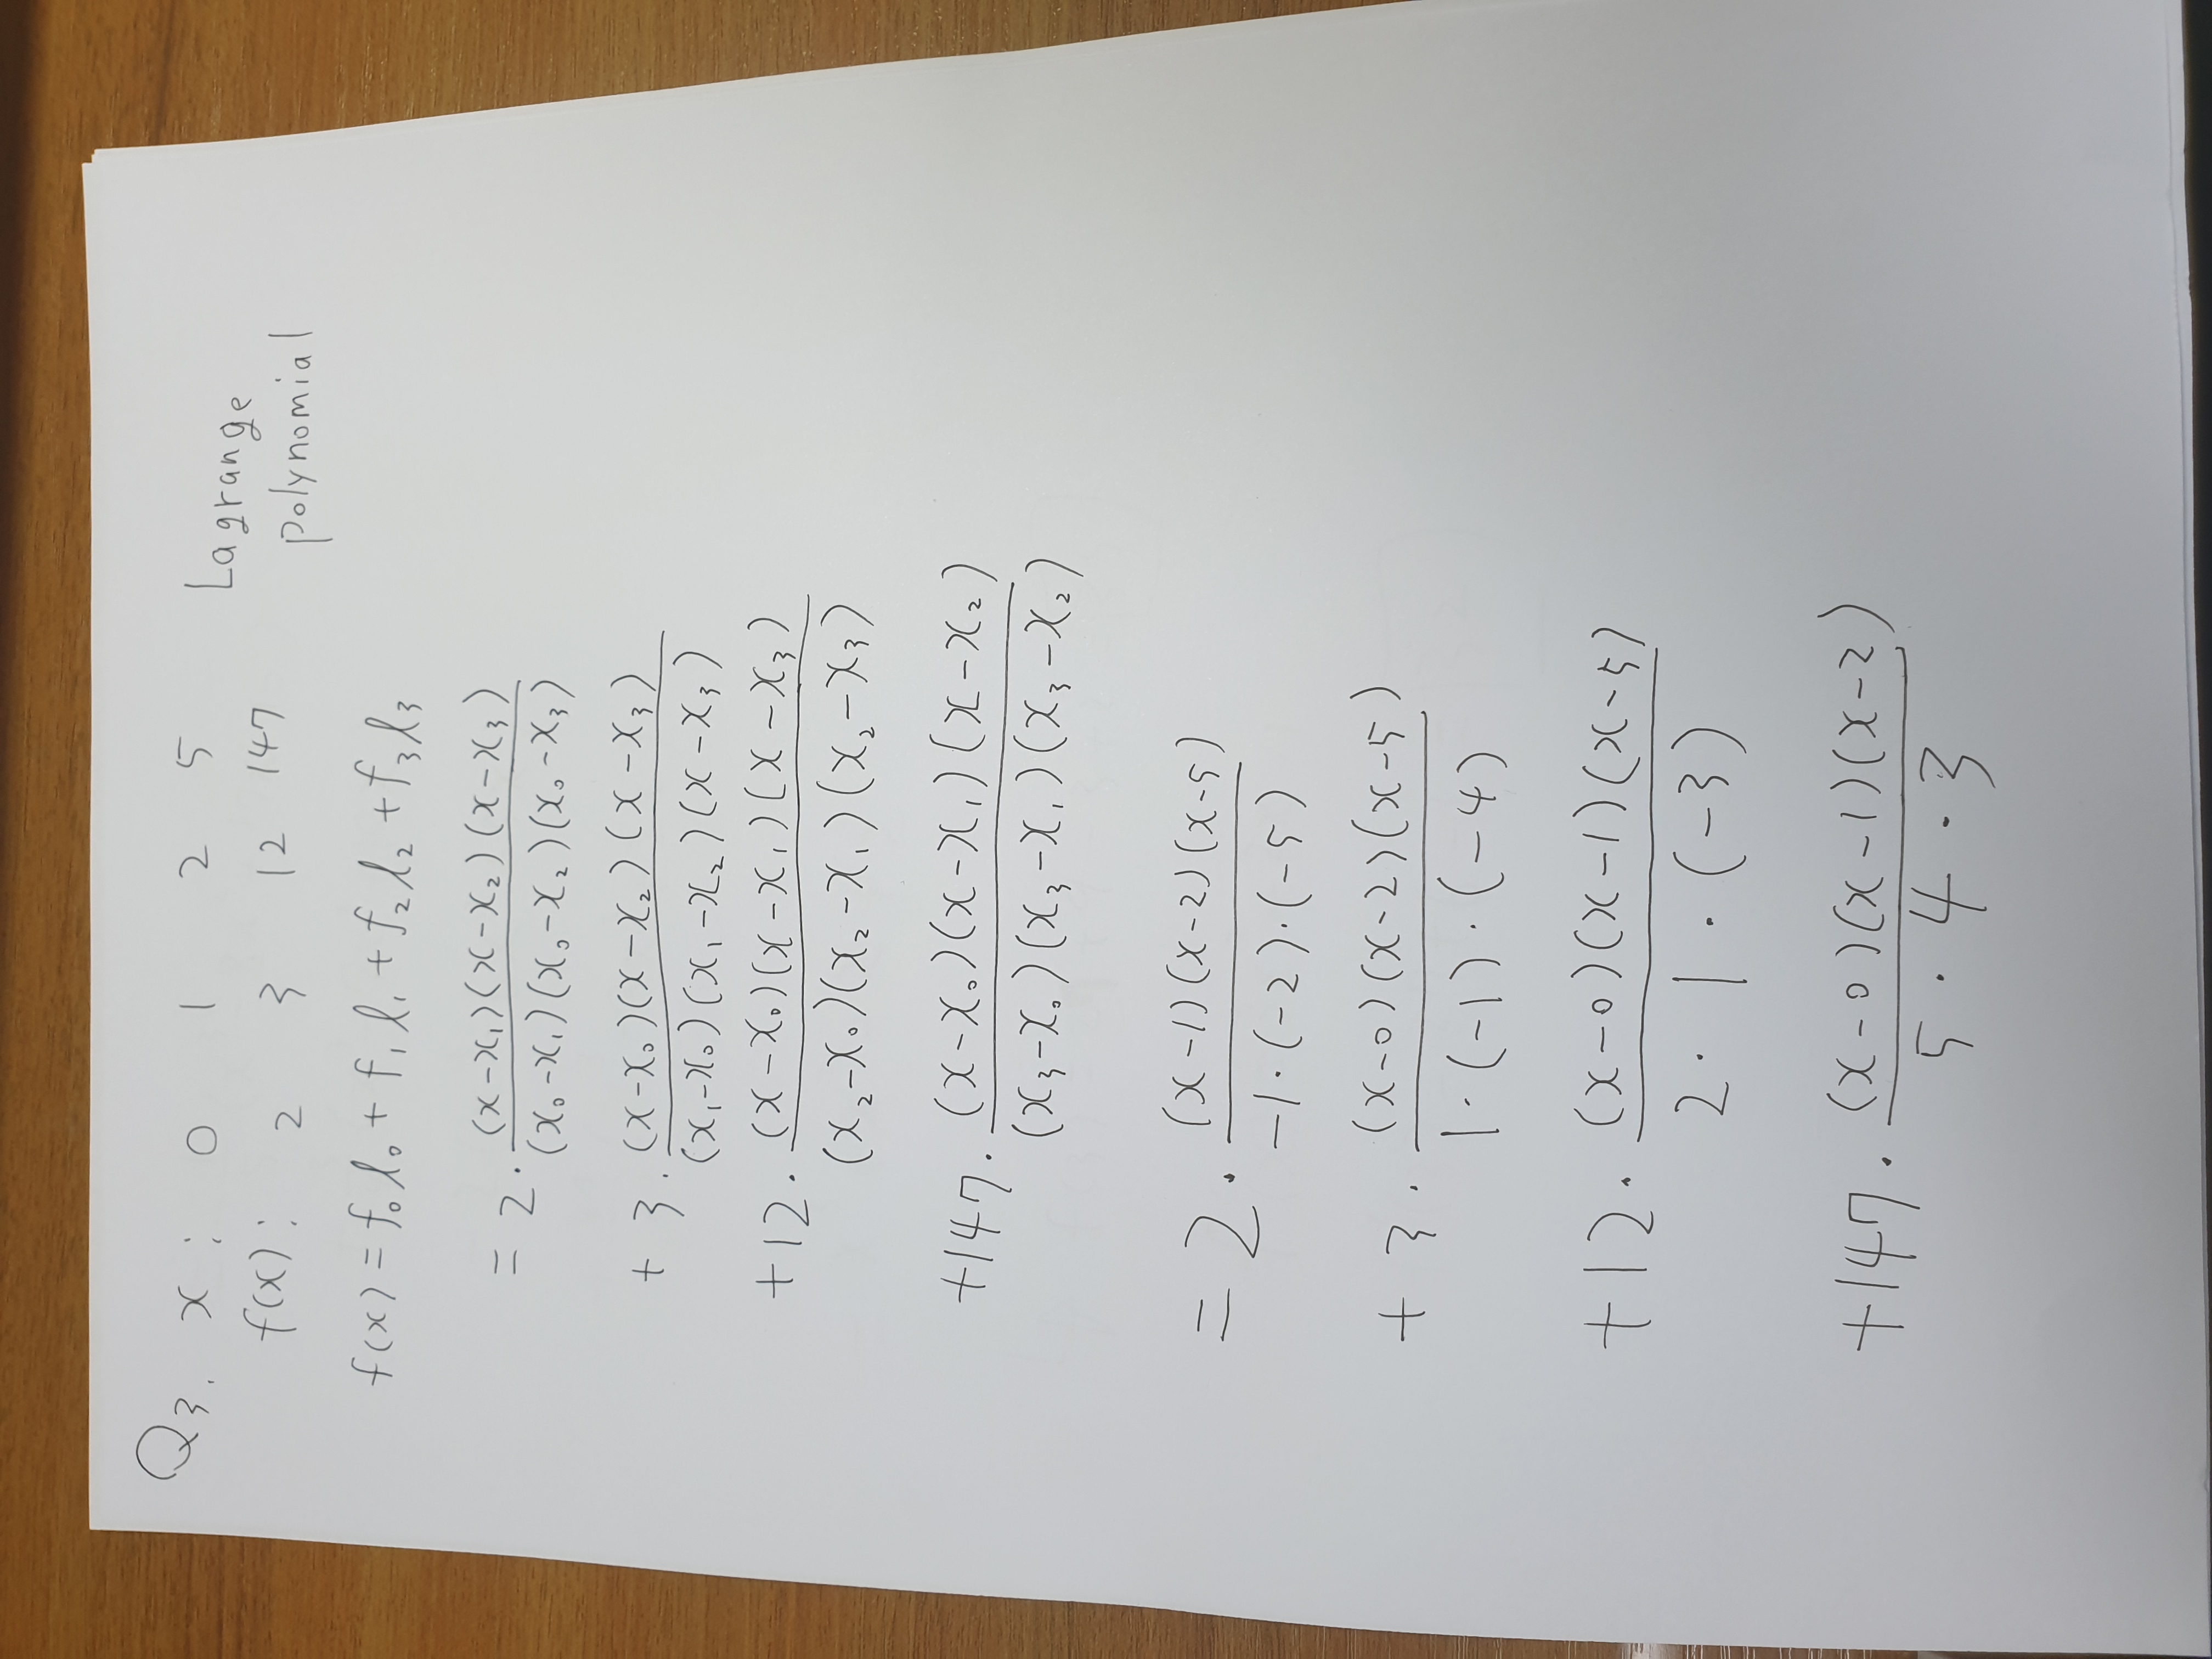 Q3. x : 0 1 2 5 Lagrange
f(x) : 2 3 12 147 polynomial
f(x) = f₀l₀ + f₁l₁ + f₂l₂ + f₃l₃
= 2 · (x-x₁)(x-x₂)(x-x₃)
(x₀-x₁)(x₀-x₂)(x₀-x₃)
+ 3 · (x-x₀)(x-x₂)(x-x₃)
(x₁-x₀)(x₁-x₂)(x-x₃)
+12 · (x-x₀)(x-x₁)(x-x₃)
(x₂-x₀)(x₂-x₁)(x₂-x₃)
+147 · (x-x₀)(x-x₁)(x-x₂)
(x₃-x₀)(x₃-x₁)(x₃-x₂)
= 2 · (x-1)(x-2)(x-5)
-1·(-2)·(-5)
+ 3 · (x-0)(x-2)(x-5)
1·(-1)·(-4)
+12 · (x-0)(x-1)(x-5)
2 · 1 · (-3)
+147 · (x-0)(x-1)(x-2)
5 · 4 · 3